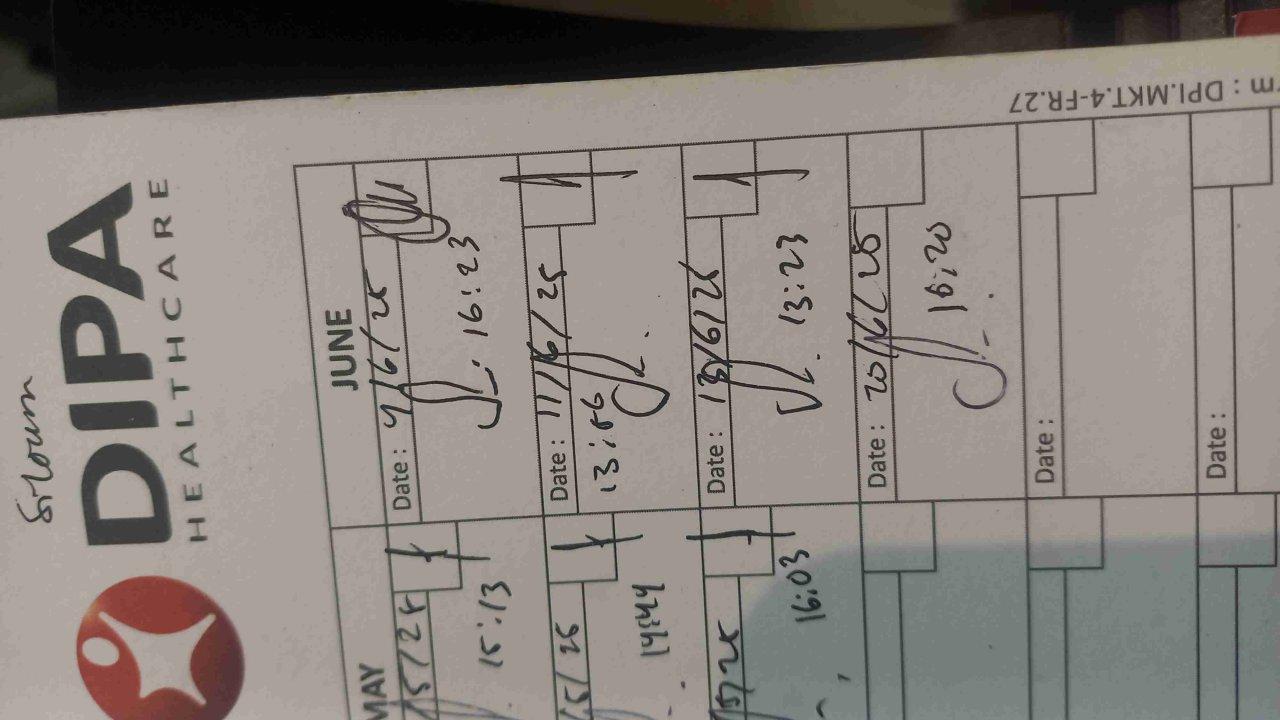 DIPA
HEALTHCARE
rm : DPI.MKT.4-FR.27
MAY
5/25
15:13
5/25
14:44
5/25
16:03
JUNE
Date : 4/6/25
16:23
Date : 11/6/25
13:56
Date : 13/6/25
13:23
Date : 20/6/25
16:20
Date :
Date :